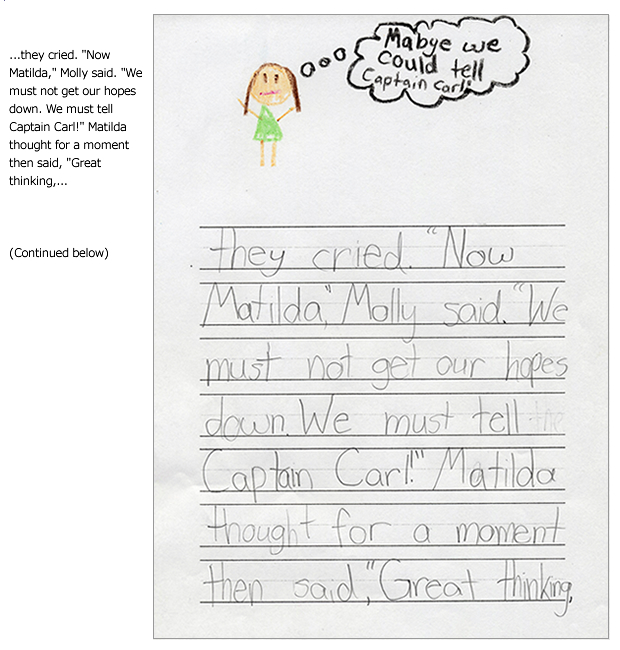 ...they cried. "Now
Matilda," Molly said. "We
must not get our hopes
down. We must tell
Captain Carl!" Matilda
thought for a moment
then said, "Great
thinking,...
(Continued below)
Mabye we
could tell
Captain Carl!
they cried. "Now
Matilda," Molly said. "We
must not get our hopes
down. We must tell the
Captain Carl!" Matilda
thought for a moment
then said, "Great thinking,